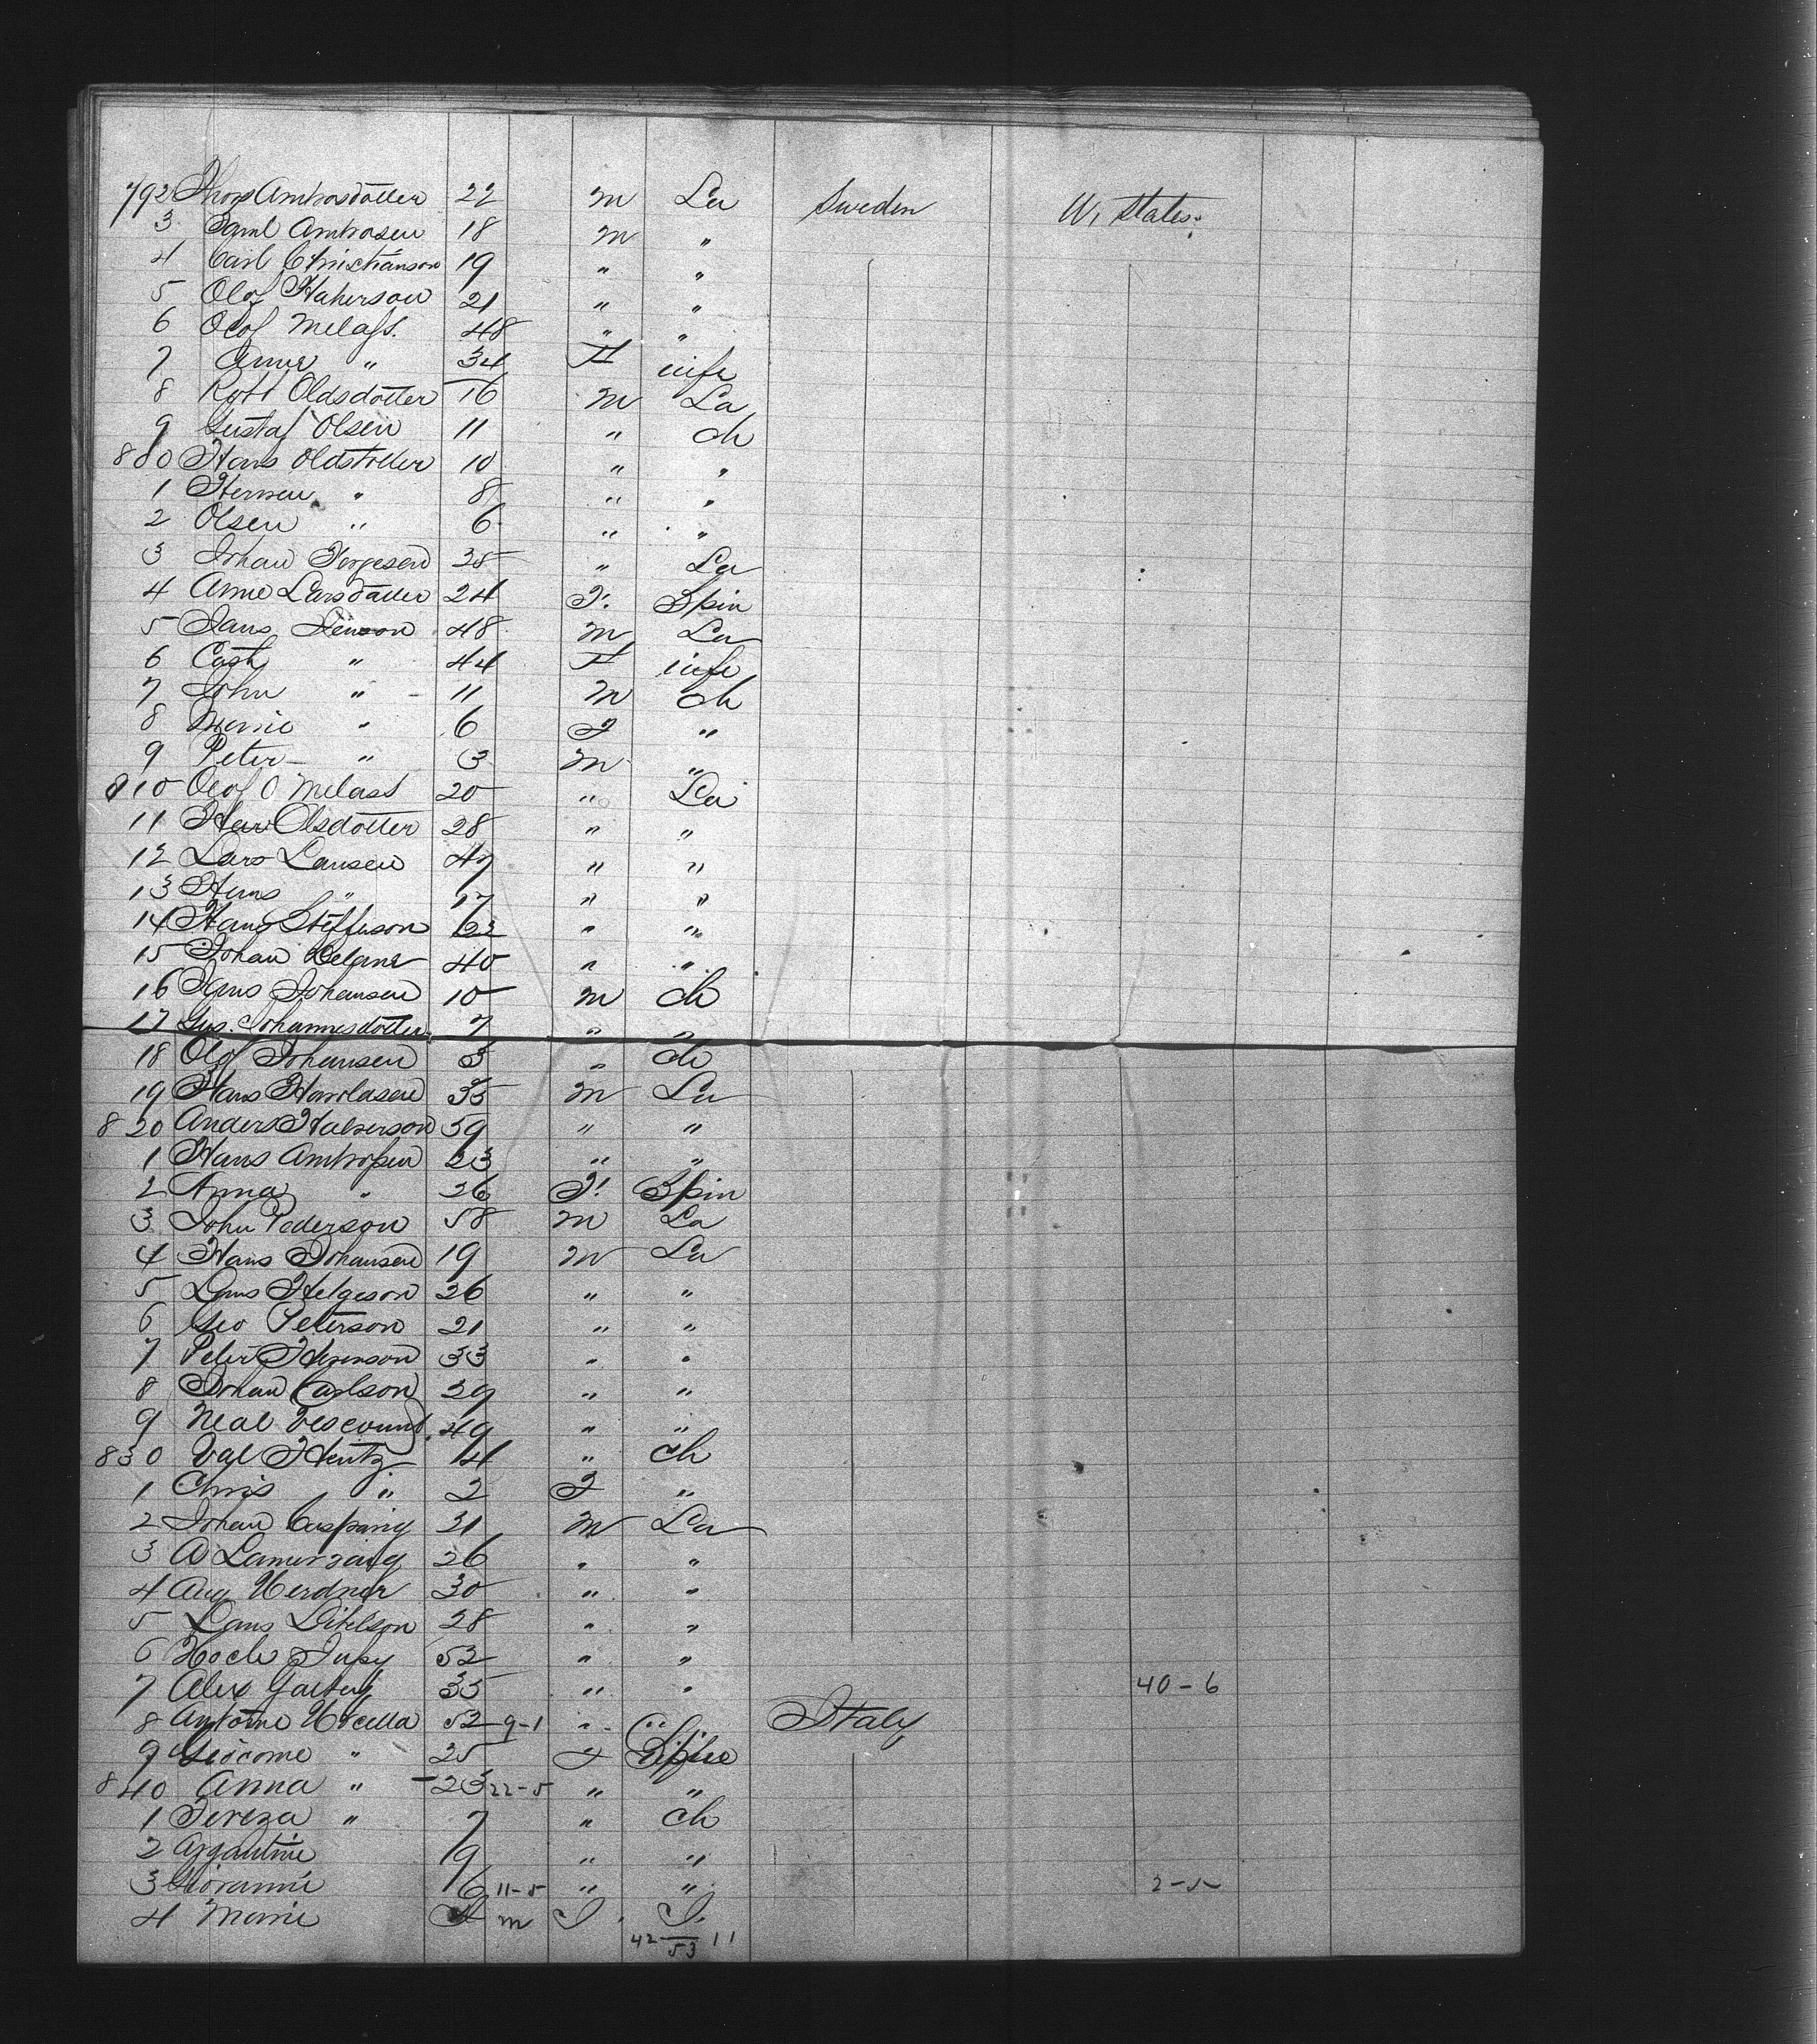 792 Thors Ambrosdotter 22 m La Sweden U, States
3 Saml Ambrosen 18 m "
4 Carl Christianson 19 " "
5 Olof Halverson 21 " "
6 Olof Melass. 48 " "
7 Anne " 34 F wife
8 Oldsdotter 16 m La
9 Gustaf Olsen 11 " ch
800 Hans Oldstotter 10 " "
1 Hernen " 8 " "
2 Olsen " 6 " "
3 Johan Torgesen 35 " La
4 Anne Larsdatter 24 F. Spin
5 Jans Jenson 48 m La
6 Cath " 44 F wife
7 John " 11 m ch
8 Marie " 6 F "
9 Peter " 3 m "
810 Olof O Melast 20 " La
11 Olsdotter 28 " "
12 Lars Lansen 47 " "
13 Hans " 17 " "
14 Hans Steffenson " "
15 Johan 40 " "
16 Jans Johansen 10 m ch
17 Gus. Johannesdotter 7 " "
18 Olof Johansen 3 " ch
19 Hans Haroldsen 35 m La
820 Anders Halverson 59 " "
1 Hans Ambrosen 23 " "
2 Anna " 26 F. Spin
3 John Pederson 58 m La
4 Hans Johansen 19 m La
5 Lans Helgeson 26 " "
6 Geo Peterson 21 " "
7 Peter 33 " "
8 Johan Carlson 29 " "
9 Neal Vescount 49 " "
830 Val Hentz 14 " ch
1 Chris " 2 F "
2 Johan Casparig 31 m La
3 A 26 " "
4 Aug Herdner 30 " "
5 Lans 28 " "
6 52 " "
7 Alex 35 " " 40-6
8 Antoine 52 9-1 " " Italy
9 Giocome " 25 F Wife
840 Anna " 23 22-5 " "
1 Tereza " 7 " ch
2 Argantine 9 " "
3 Giovanni 6 11-5 " " 2-5
4 Marie m F. I.
42 53 11